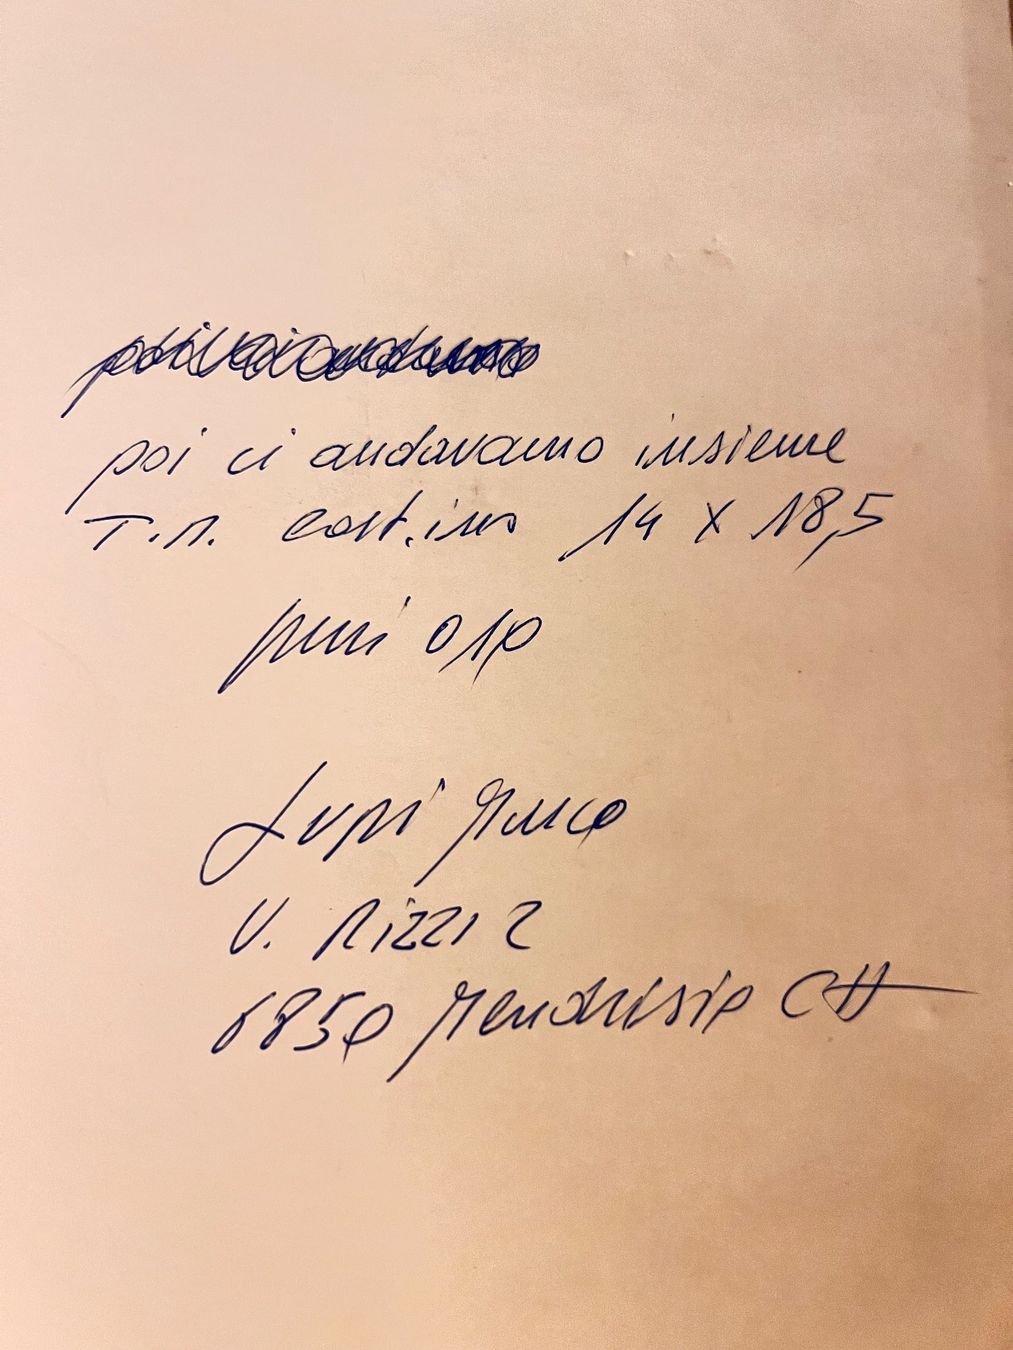 poi ci andavamo insieme
T.M. cart.ino 14 x 18,5
Lupi Marco
V. Rizzi 2
6850 Mendrisio CH